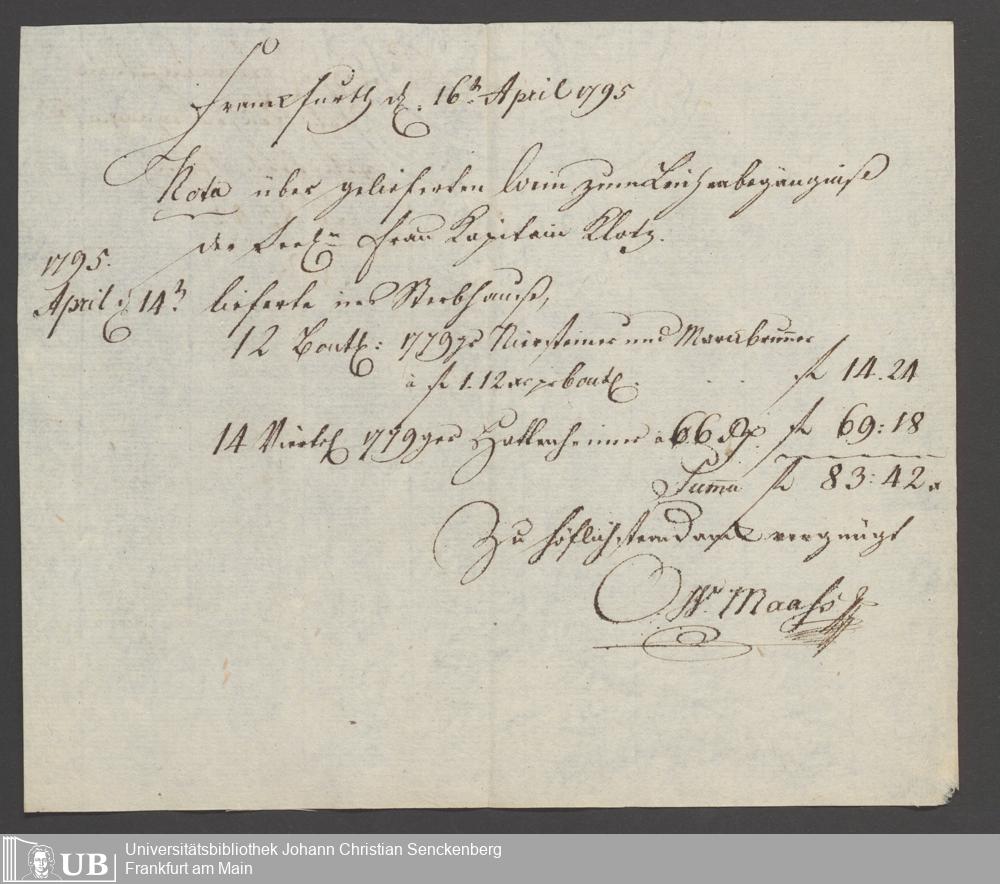 Franckfurth d. 16ⁿ April 1795
Nota über gelieferten Wein zum Leichenbegängniß
der Seelⁿ Frau Kapitain Klotz.
1795.
April d 14ⁿ lieferte ins Sterbhauß,
12 Boutl: 1779gr Niersteiner und Marcubrunner
à f 1.12 xr pr boutl. . . f 14.24
14 Viertl 1779ger Hattenheimer a 66 f 69:18
Summa f 83:42 x
Zu höflichstem Danck vergnügt
W. Maass
UB Universitätsbibliothek Johann Christian Senckenberg
Frankfurt am Main